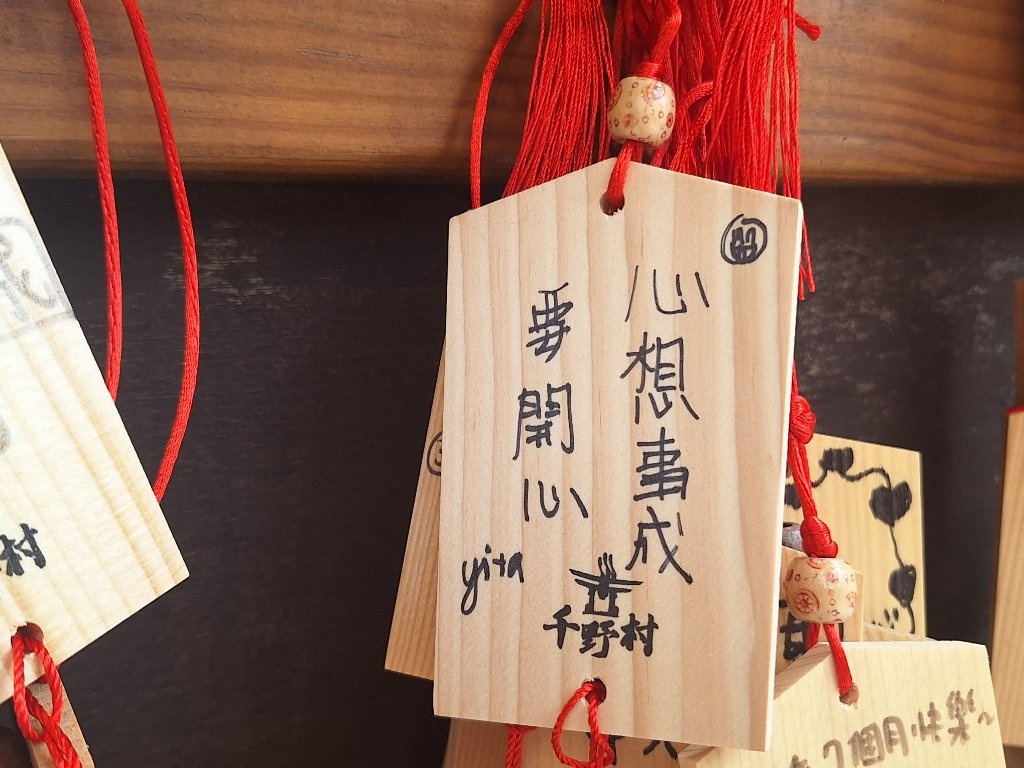 心想事成
要開心
yita
千野村
村
7個月快樂~